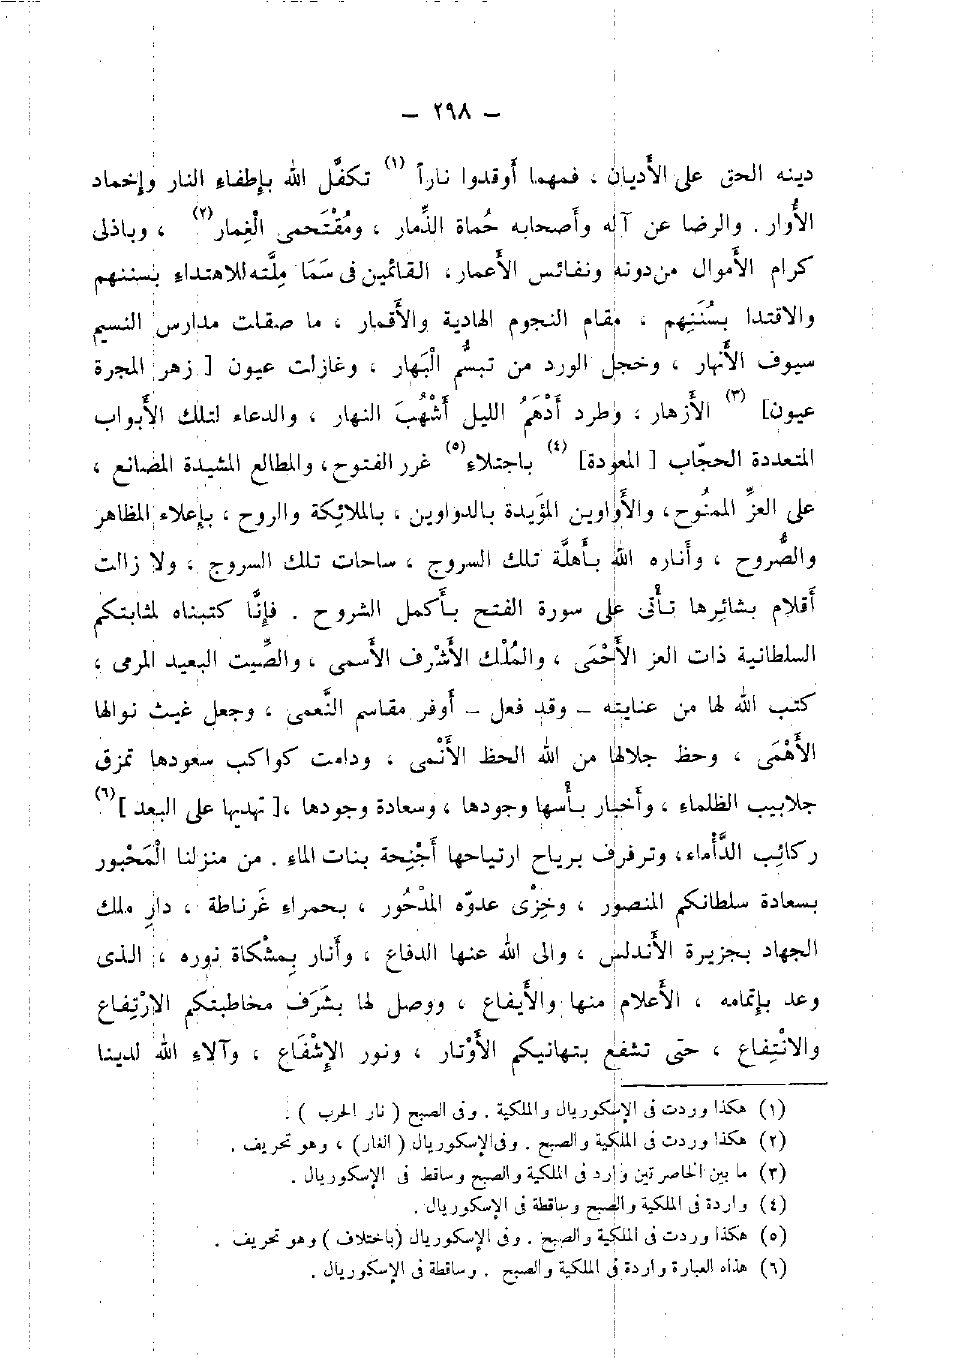 — ٢٩٨ —
دينه الحق على الأديان ، فمهما أوقدوا ناراً (١) تكفَّل الله بإطفاء النار وإخماد
الأُوار . والرضا عن آله وأصحابه حُماة الذِّمار ، ومُقْتَحمى الْغِمار(٢) ، وباذلى
كرام الأموال من دونه ونفائس الأعمار، القائمين فى سَمَا مِلَّته للاهتداء بسننهم
والاقتدا بسُنَنِهم ، مقام النجوم الهادية والأقمار ، ما صقلت مدارس النسيم
سيوف الأنهار ، وخجل الورد من تبسُّم الْبَهار ، وغازلت عيون [ زهر المجرة
عيون] (٣) الأزهار ، وطرد أدْهَمُ الليل أشْهُبَ النهار ، والدعاء لتلك الأبواب
المتعددة الحجّاب [ المعودة] (٤) باجتلاء(٥) غرر الفتوح، والمطالع المشيدة المصانع ،
على العزِّ الممنُوح، والأَواوين المؤَيدة بالدواوين ، بالملائكة والروح ، بإعلاء المظاهر
والصُّروح ، وأناره الله بأهلَّة تلك السروج ، ساحات تلك السروج ، ولا زالت
أقلام بشائِرها تأْتى على سورة الفتح بأكمل الشروح . فإنَّا كتبناه لمثابتكم
السلطانية ذات العز الأَحْمَى ، والمُلْك الأشْرف الأسمى ، والصِّيت البعيد المرمى ،
كتب الله لها من عنايته – وقد فعل – أوفر مقاسم النَّعمى ، وجعل غيث نوالها
الأَهْمَى ، وحظ جلالها من الله الحظ الأَنْمى ، ودامت كواكب سعودها تمزق
جلابيب الظلماء ، وأخبار بأْسها وجودها ، وسعادة وجودها ،[ تهديها على البعد ](٦)
ركائِب الدَّأْماء، وترفرف برياح ارتياحها أجْنِحة بنات الماءِ . من منزلنا الْمَحْبور
بسعادة سلطانكم المنصور ، وخِزْى عدوّه المدْحُور ، بحمراءِ غَرناطة ، دارِ ملك
الجهاد بجزيرة الأندلس ، والى الله عنها الدفاع ، وأنار بِمشْكاة نوره ، الذى
وعد بإتمامه ، الأعلام منها والأيفاع ، ووصل لها بشَرَف مخاطبتكم الارْتِفاع
والانْتِفاع ، حتى تشفع بتهانيكم الأَوْتار ، ونور الإشْفَاع ، وآلاءِ الله لدينا
(١) هكذا وردت فى الإسكوريال والملكية . وفى الصبح ( نار الحرب ) .
(٢) هكذا وردت فى الملكية والصبح . وفى الإسكوريال ( الغار) ، وهو تحريف .
(٣) ما بين الخاصرتين وارد فى الملكية والصبح وساقط فى الإسكوريال .
(٤) واردة فى الملكية والصبح وساقطة فى الإسكوريال .
(٥) هكذا وردت فى الملكية والصبح . وفى الإسكوريال (باختلاف ) وهو تحريف .
(٦) هذه العبارة واردة فى الملكية والصبح . وساقطة فى الإسكوريال .